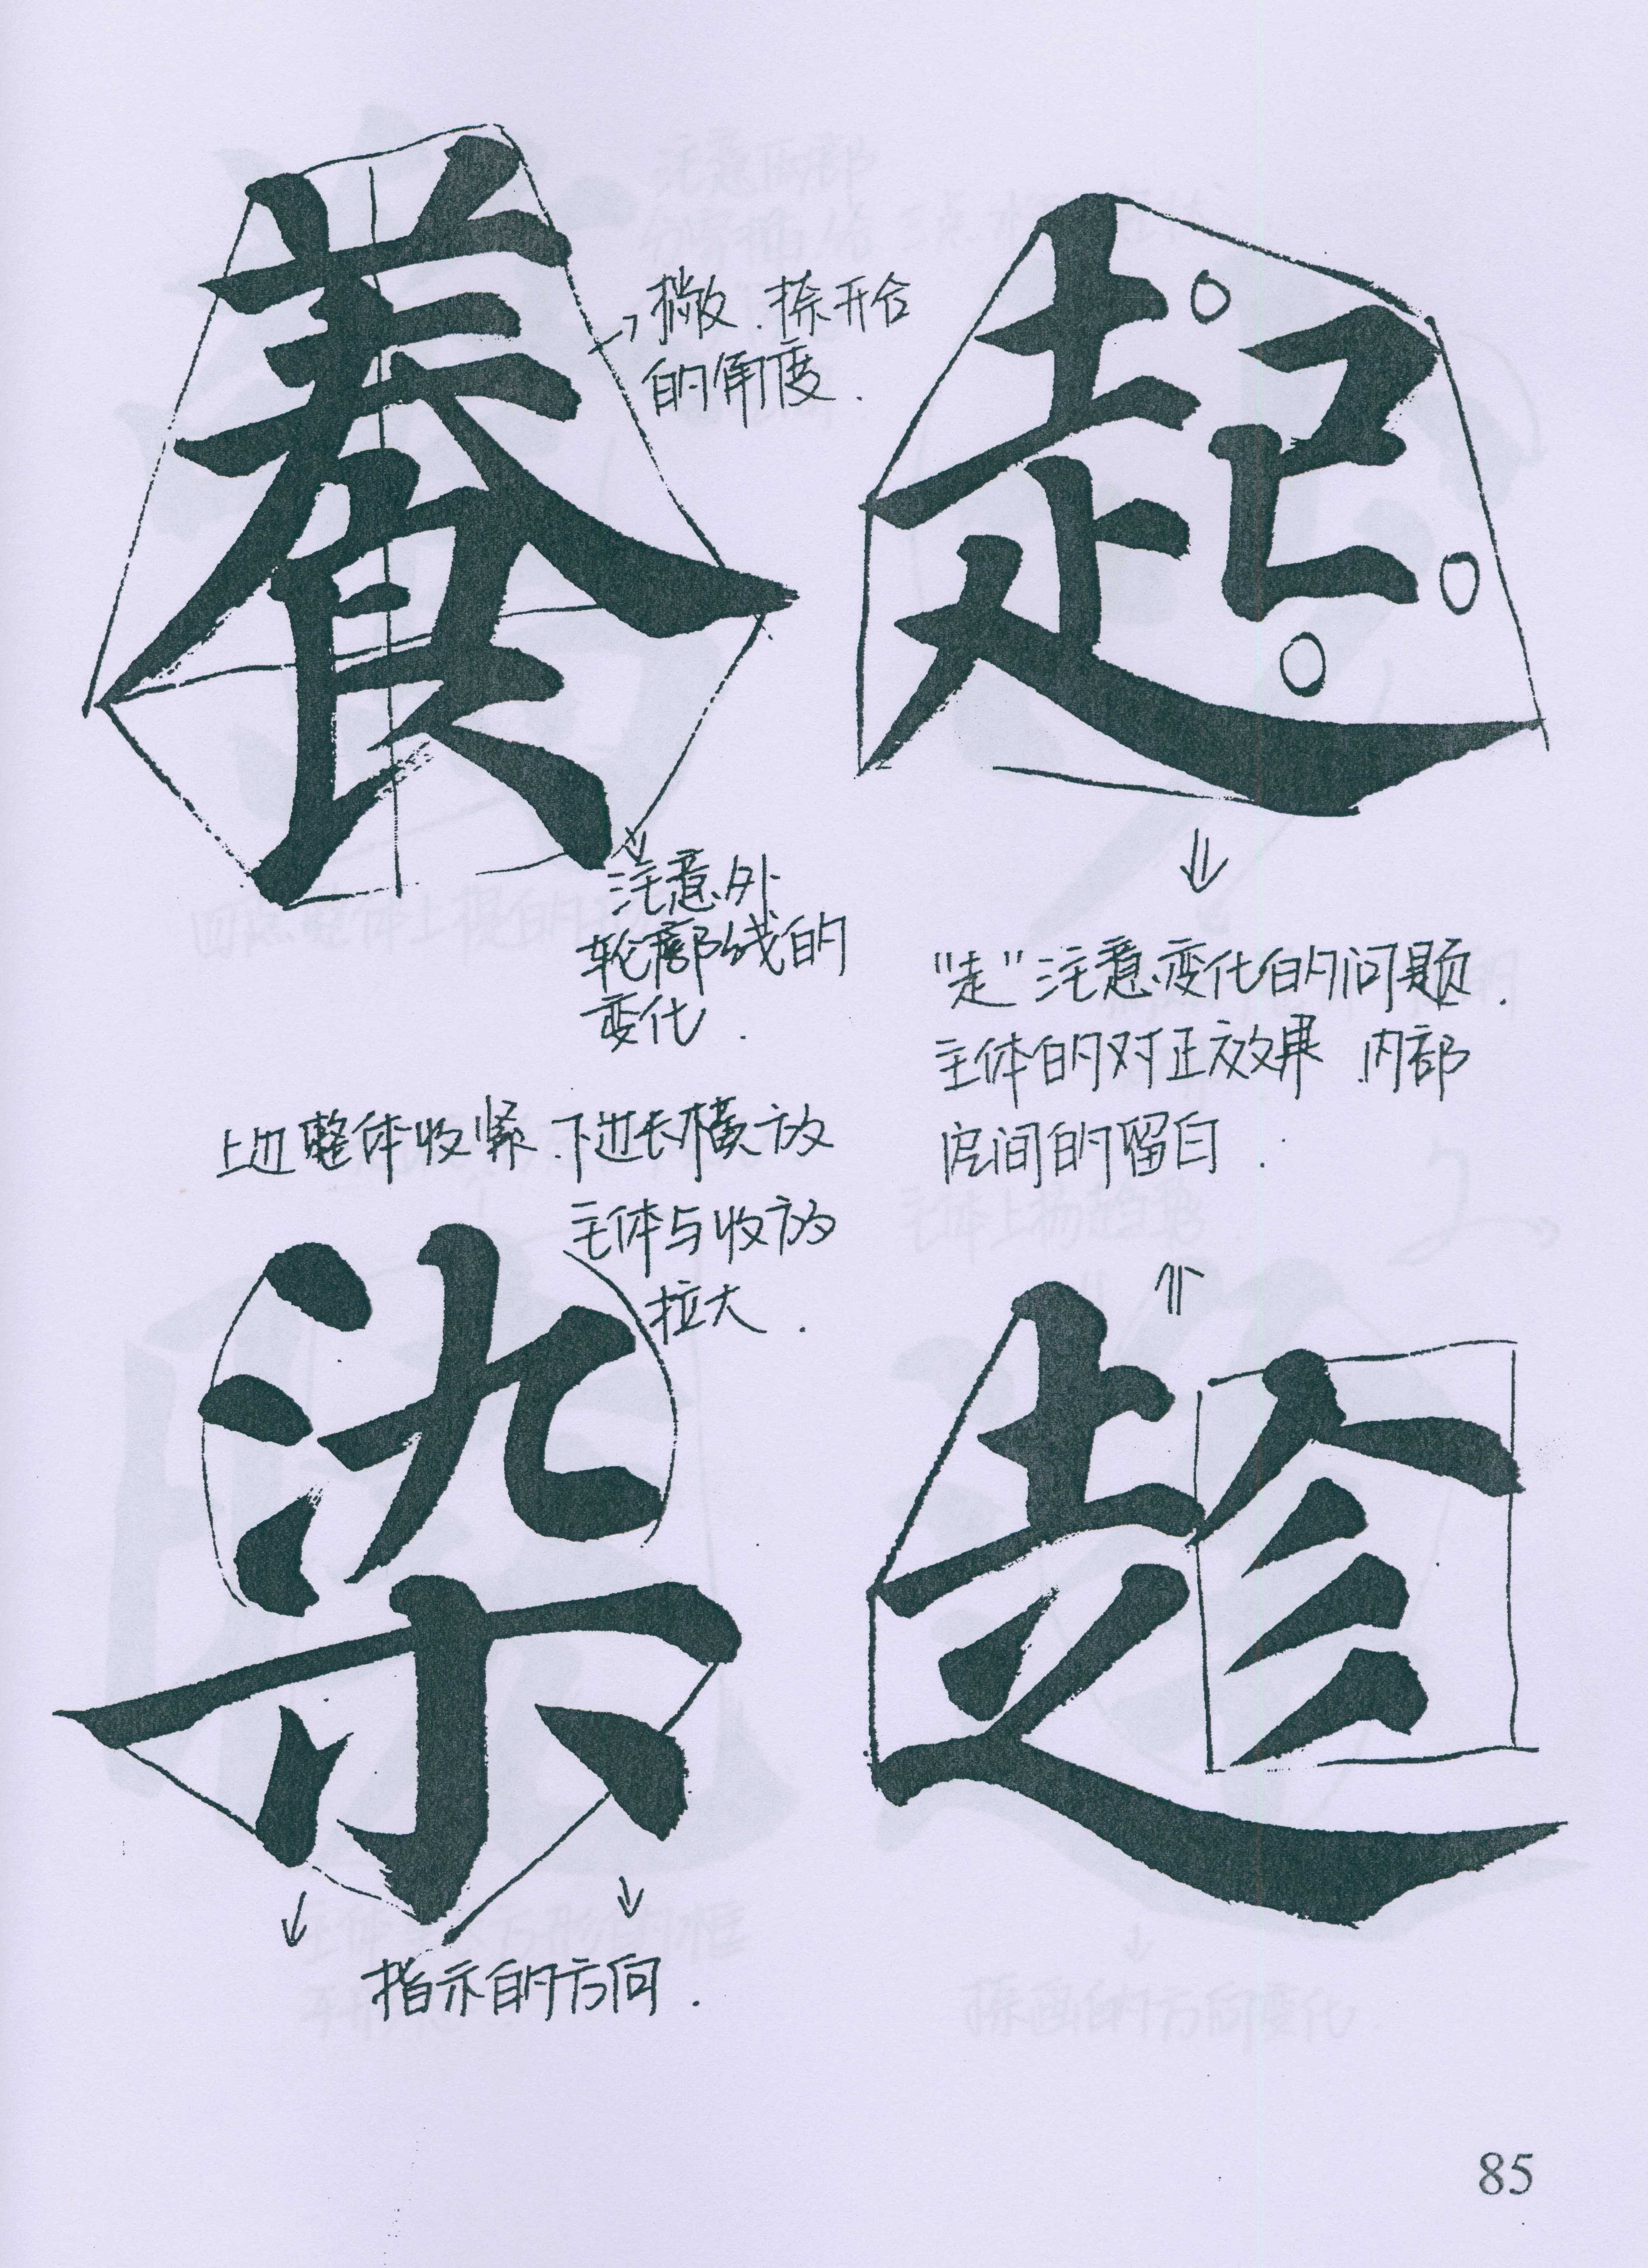 養
起
撇.捺开合
的角度.
注意外
轮廓线的
变化.
"走"注意变化的问题.
主体的对正效果.内部
房间的留白.
上边整体收紧.下边长横放
主体与收放
拉大.
染
趁
指示的方向.
85